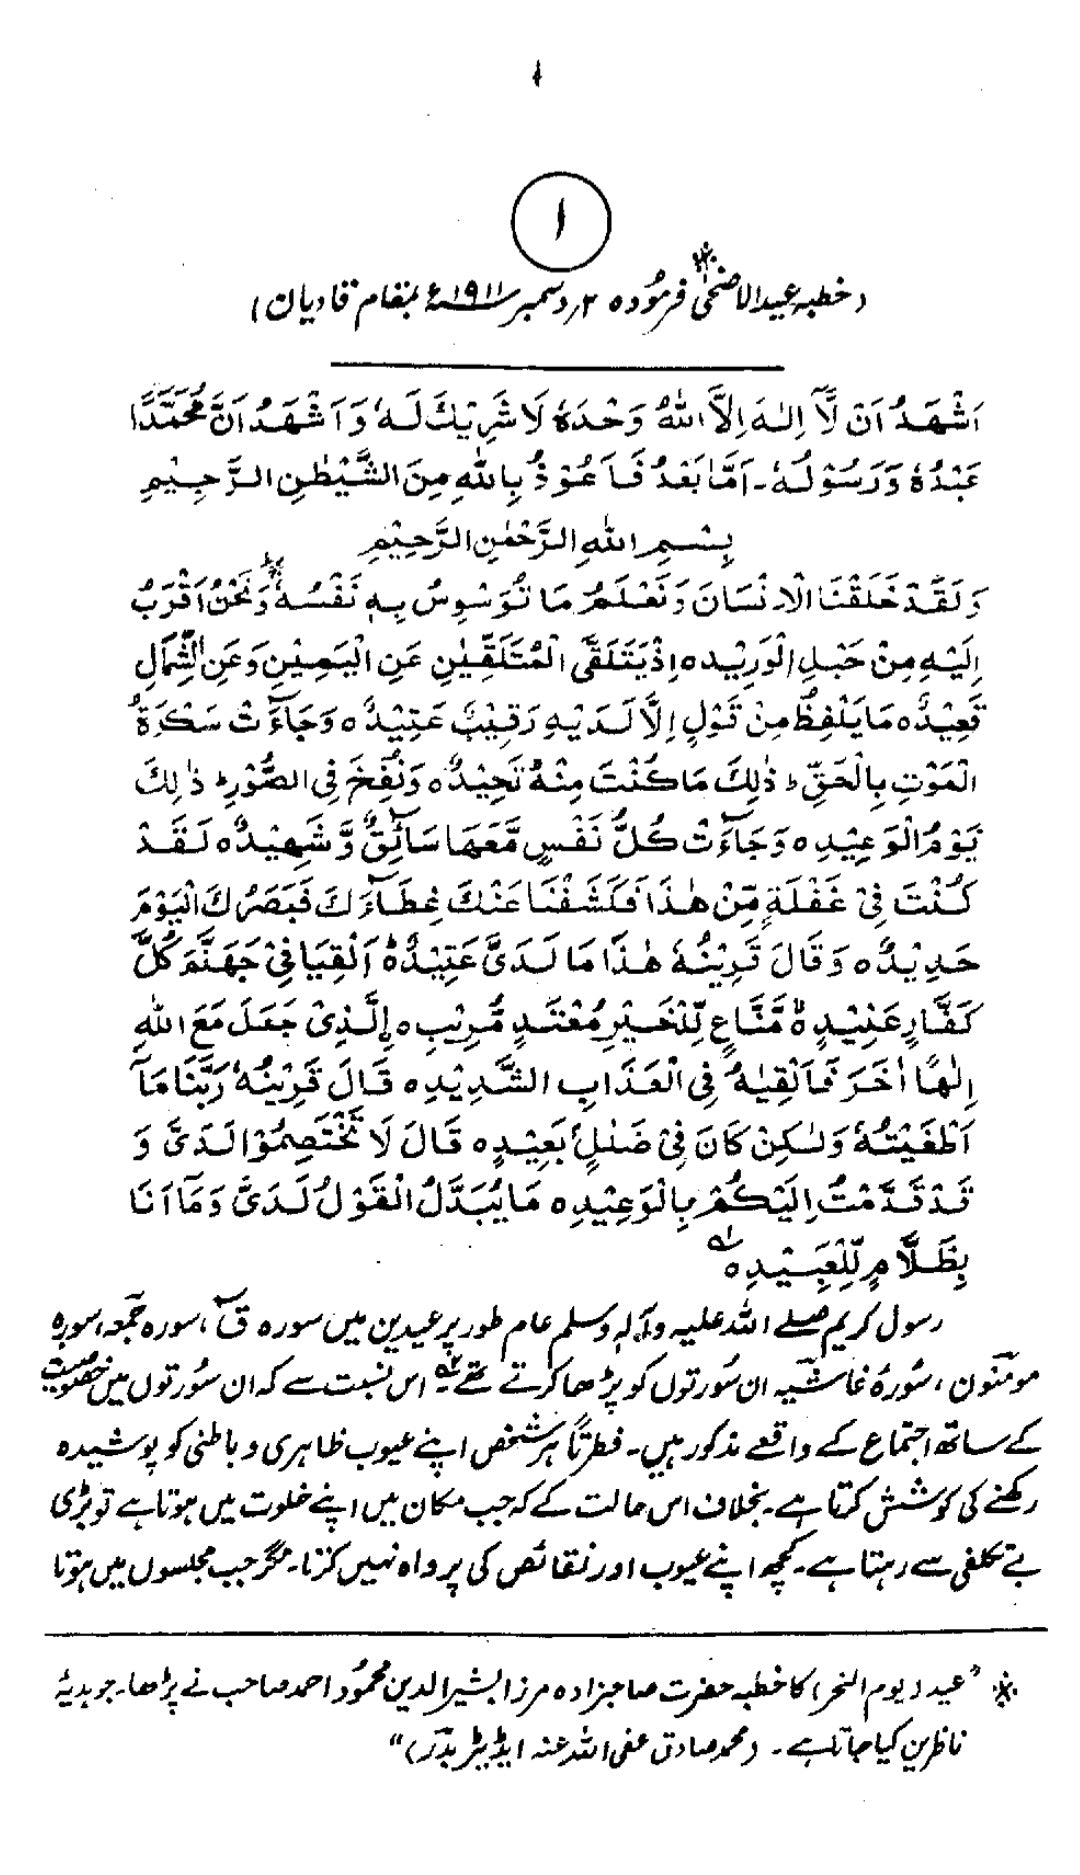 ۱
۱
(خطبہ عیدالاضحیٰ فرمُودہ ۲؍دسمبر ۱۹۱۱ء بمقام قادیان)
اَشْهَدُ اَنْ لَّآ اِلٰهَ اِلَّا اللّٰهُ وَحْدَهٗ لَا شَرِيْكَ لَهٗ وَ اَشْهَدُ اَنَّ مُحَمَّدًا
عَبْدُهٗ وَرَسُوْلُهٗ۔ اَمَّا بَعْدُ فَاَعُوْذُ بِاللّٰهِ مِنَ الشَّيْطٰنِ الرَّجِيْمِ
بِسْمِ اللّٰهِ الرَّحْمٰنِ الرَّحِيْمِ
وَلَقَدْ خَلَقْنَا الْاِنْسَانَ وَنَعْلَمُ مَا تُوَسْوِسُ بِهٖ نَفْسُهٗ وَنَحْنُ اَقْرَبُ
اِلَيْهِ مِنْ حَبْلِ الْوَرِيْدِ ہ اِذْ يَتَلَقَّى الْمُتَلَقِّيٰنِ عَنِ الْيَمِيْنِ وَعَنِ الشِّمَالِ
قَعِيْدٌ ہ مَا يَلْفِظُ مِنْ قَوْلٍ اِلَّا لَدَيْهِ رَقِيْبٌ عَتِيْدٌ ہ وَجَآءَتْ سَكْرَةُ
الْمَوْتِ بِالْحَقِّ ط ذٰلِكَ مَا كُنْتَ مِنْهُ تَحِيْدُ ہ وَنُفِخَ فِي الصُّوْرِ ط ذٰلِكَ
يَوْمُ الْوَعِيْدِ ہ وَجَآءَتْ كُلُّ نَفْسٍ مَّعَهَا سَآئِقٌ وَّشَهِيْدٌ ہ لَقَدْ
كُنْتَ فِيْ غَفْلَةٍ مِّنْ هٰذَا فَكَشَفْنَا عَنْكَ غِطَآءَكَ فَبَصَرُكَ الْيَوْمَ
حَدِيْدٌ ہ وَقَالَ قَرِيْنُهٗ هٰذَا مَا لَدَيَّ عَتِيْدٌ ہ اَلْقِيَا فِيْ جَهَنَّمَ كُلَّ
كَفَّارٍ عَنِيْدٍ ہ مَّنَّاعٍ لِّلْخَيْرِ مُعْتَدٍ مُّرِيْبٍ ہ اِلَّذِيْ جَعَلَ مَعَ اللّٰهِ
اِلٰهًا اٰخَرَ فَاَلْقِيٰهُ فِي الْعَذَابِ الشَّدِيْدِ ہ قَالَ قَرِيْنُهٗ رَبَّنَا مَآ
اَطْغَيْتُهٗ وَلٰكِنْ كَانَ فِيْ ضَلٰلٍ بَعِيْدٍ ہ قَالَ لَا تَخْتَصِمُوْا لَدَيَّ وَ
قَدْ قَدَّمْتُ اِلَيْكُمْ بِالْوَعِيْدِ ہ مَا يُبَدَّلُ الْقَوْلُ لَدَيَّ وَمَآ اَنَا
بِظَلَّامٍ لِّلْعَبِيْدِ ہ ۱؎
رسول کریم صلے اللہ علیہ وآلہٖ وسلم عام طور پر عیدین میں سورہ قٓ، سورہ جمعہ، سورہ
مومنون، سُورۂ غاشیہ ان سُورتوں کو پڑھا کرتے تھے ۲؎۔ اس نسبت سے کہ ان سُورتوں میں خصوصیت
کے ساتھ اجتماع کے واقعے مذکور ہیں۔ فطرتاً ہر شخص اپنے عیوب ظاہری و باطنی کو پوشیدہ
رکھنے کی کوشش کرتا ہے۔ بخلاف اس حالت کے کہ جب مکان میں اپنے خلوت میں ہوتا ہے تو بڑی
بے تکلفی سے رہتا ہے۔ کچھ اپنے عیوب اور نقائص کی پرواہ نہیں کرتا۔ مگر جب مجلسوں میں ہوتا
※ "عید (یوم النحر) کا خطبہ حضرت صاحبزادہ مرزا بشیر الدین محمُود احمد صاحب نے پڑھا۔ جو ہدیۂ
ناظرین کیا جاتا ہے۔ (محمد صادق عفی اللہ عنہ ایڈیٹر بدر)"